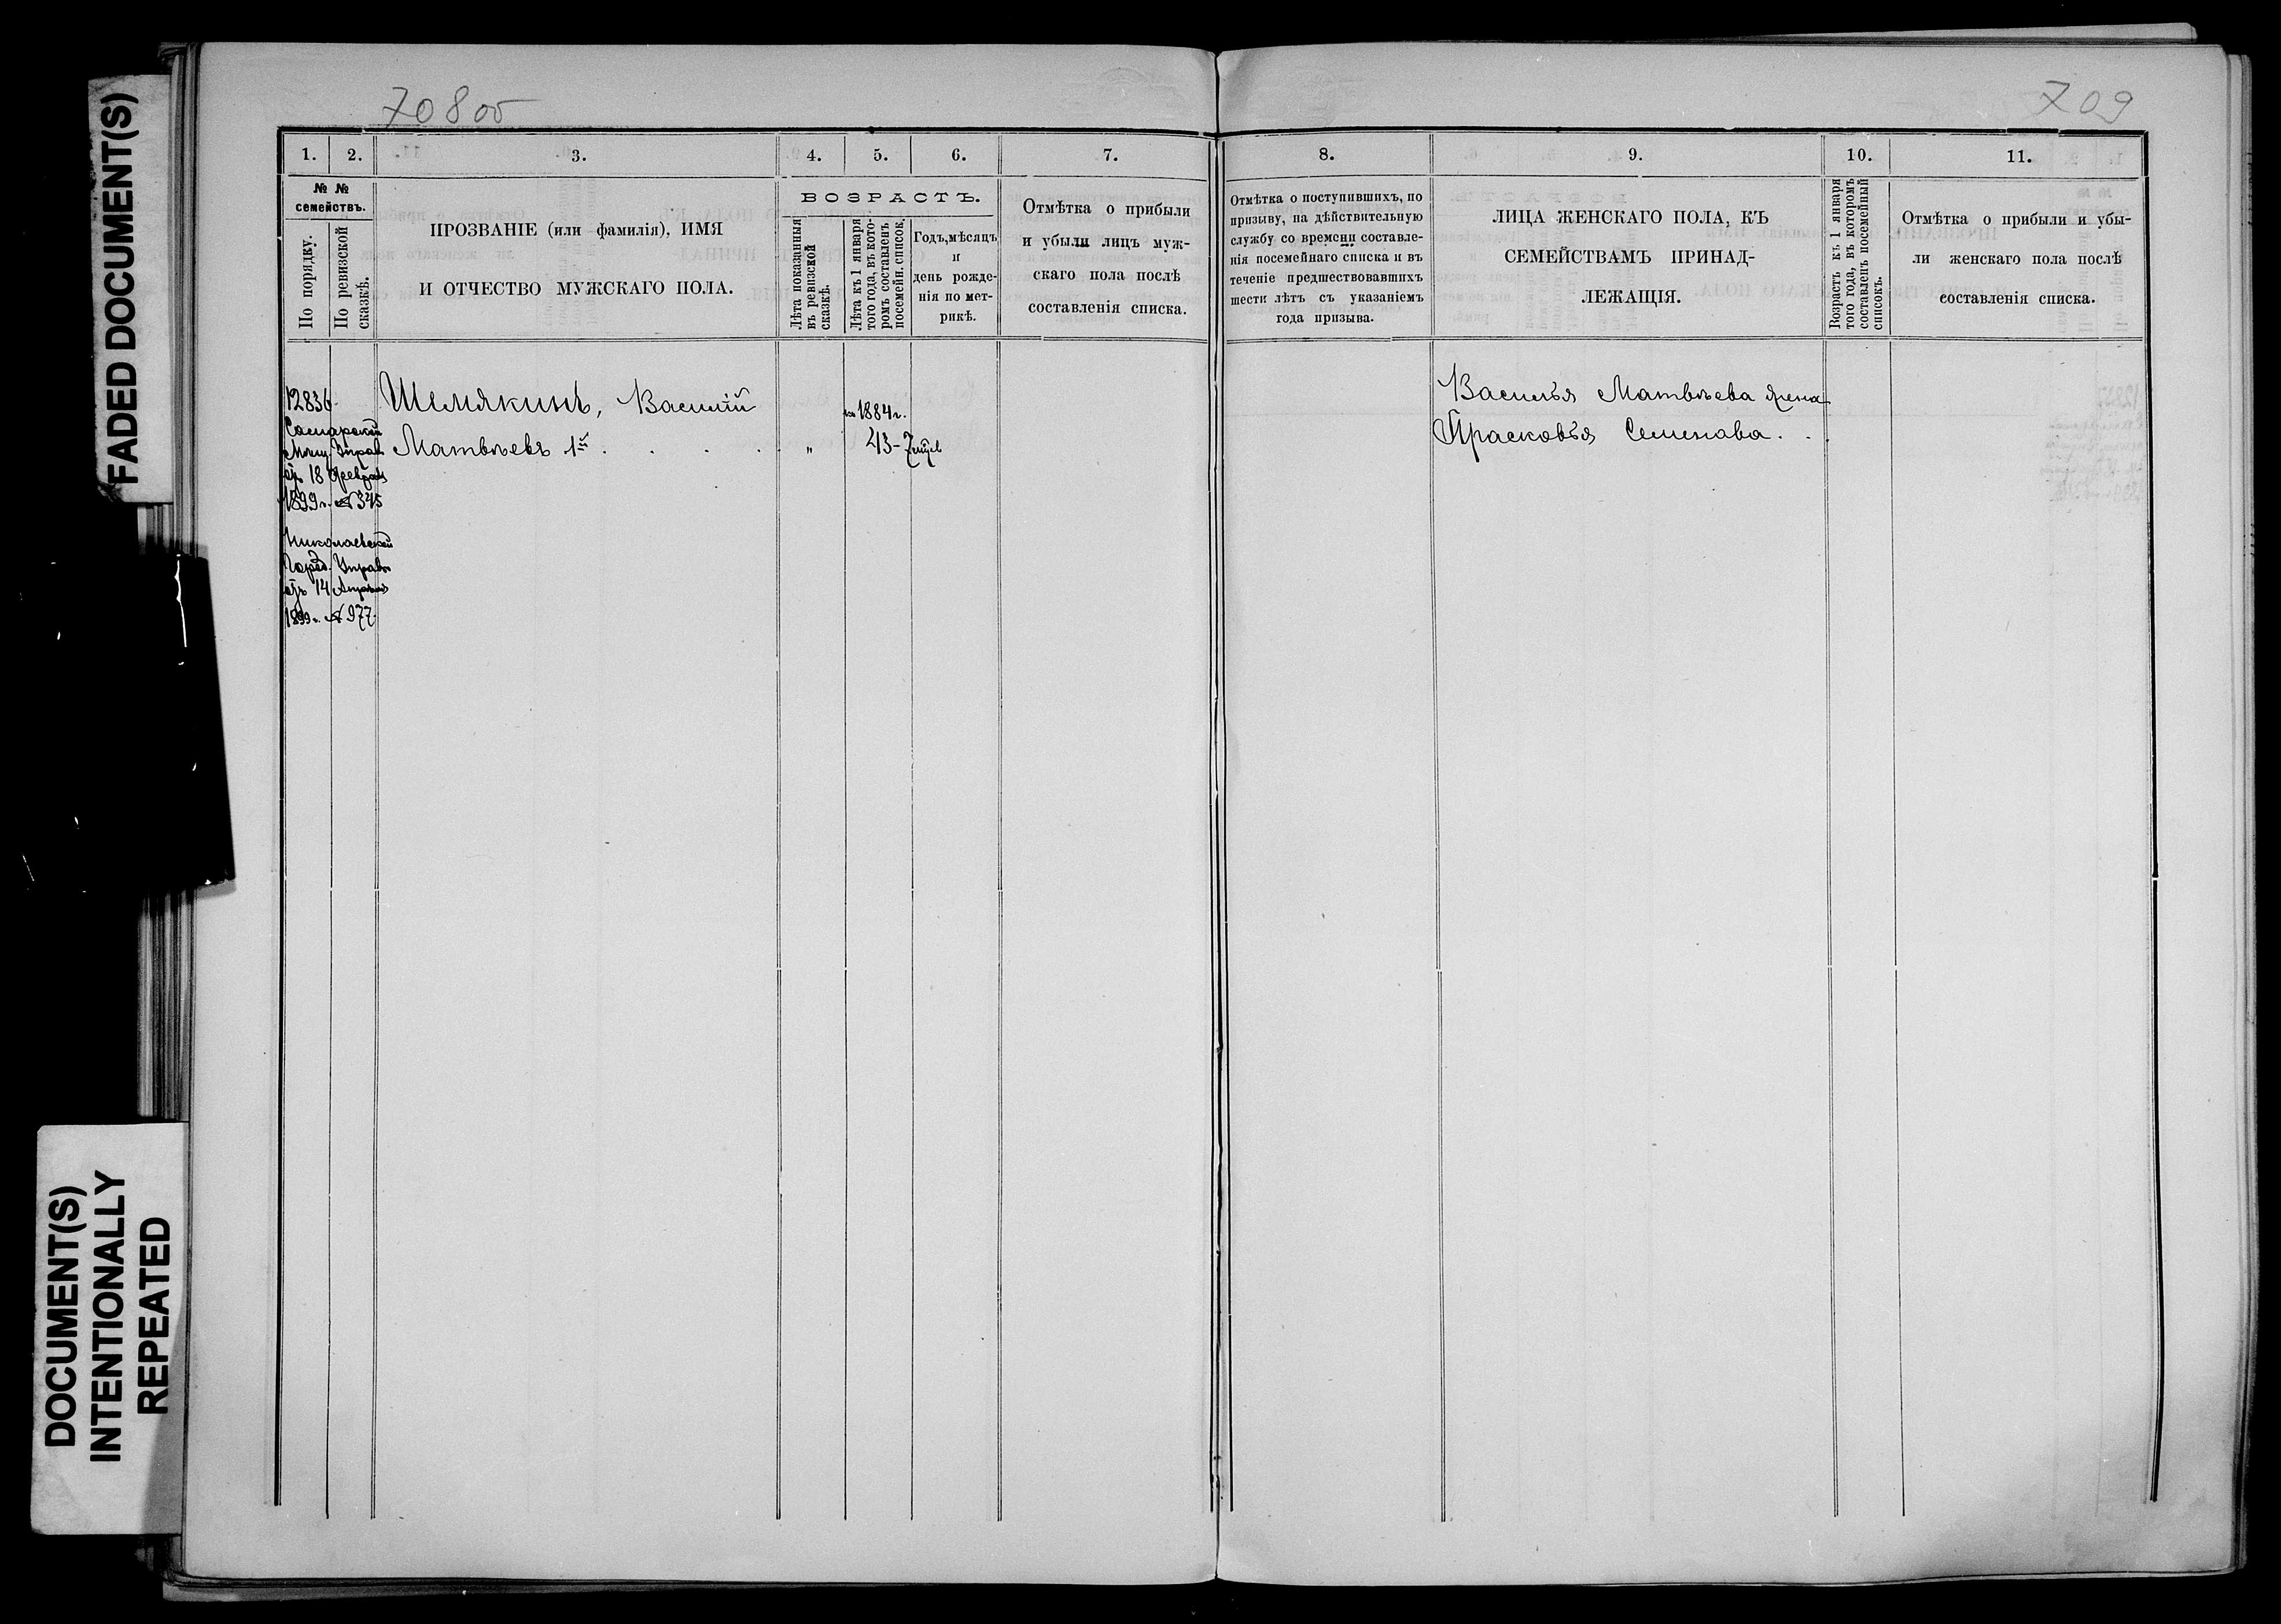 FADED DOCUMENT(S)
DOCUMENT(S)
INTENTIONALLY
REPEATED
708 об
1. 2. 3. 4. 5. 6. 7.
№ №
семействъ.
По порядку.
По ревизской
сказкѣ.
ПРОЗВАНІЕ (или фамилія), ИМЯ
И ОТЧЕСТВО МУЖСКАГО ПОЛА.
ВОЗРАСТЪ.
Лѣта показанныя
въ ревизской
сказкѣ.
Лѣта къ 1 января
того года, въ кото-
ромъ составленъ
посемейн. список.
Годъ, мѣсяцъ
и
день рожде-
нія по мет-
рикѣ.
Отмѣтка о прибыли
и убыли лицъ муж-
скаго пола послѣ
составленія списка.
12836.
Самарской
Мѣщ. Управ
отъ 18 Февраля
1899 г. № 345
Николаевской
Город. Управы
отъ 14 Апрѣля
1899 г. № 977.
Шемякинъ, Василій
Матвѣевъ 1й . . . .
"
1884 г.
43-7
709
8. 9. 10. 11.
Отмѣтка о поступившихъ, по
призыву, на дѣйствительную
службу со времени составле-
нія посемейнаго списка и въ
теченіе предшествовавшихъ
шести лѣтъ съ указаніемъ
года призыва.
ЛИЦА ЖЕНСКАГО ПОЛА, КЪ
СЕМЕЙСТВАМЪ ПРИНАД-
ЛЕЖАЩІЯ.
Возрастъ къ 1 января
того года, въ которомъ
составленъ посемейный
списокъ.
Отмѣтка о прибыли и убы-
ли женскаго пола послѣ
составленія списка.
Василья Матвѣева жена
Прасковья Семенова . .